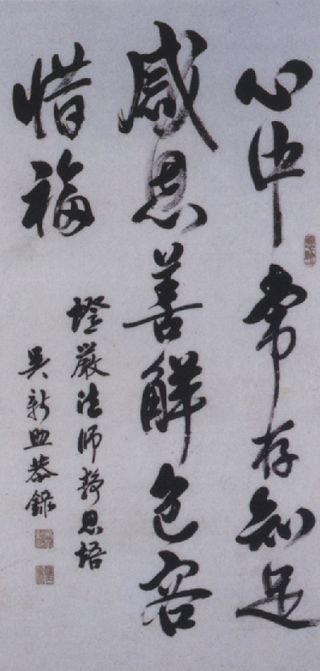 心中常存知足
感恩善解包容
惜福
證嚴法師靜思語
吳新血恭錄